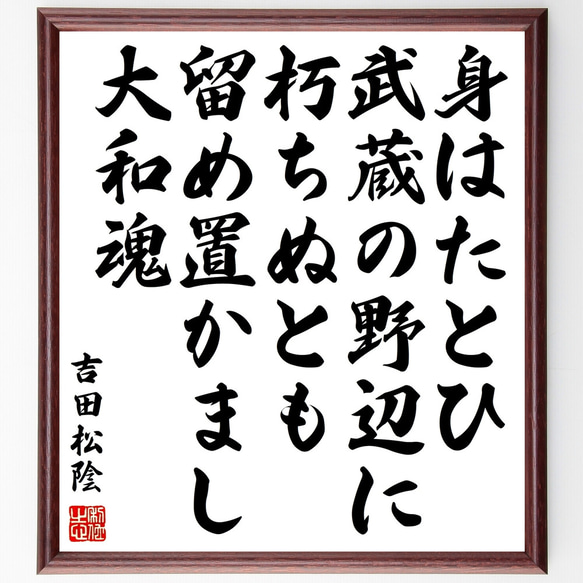 身はたとひ
武蔵の野辺に
朽ちぬとも
留め置かまし
大和魂
吉田松陰